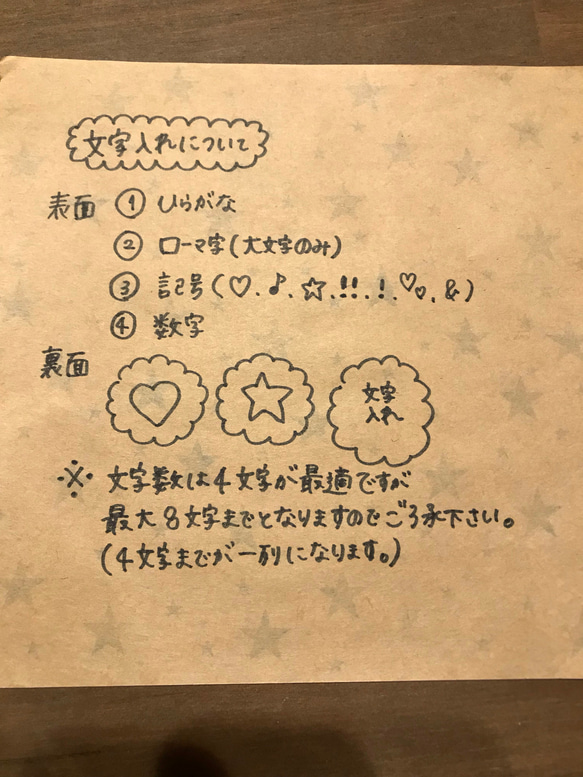 文字入れについて
表面 ① ひらがな
② ローマ字(大文字のみ)
③ 記号(♡、♪、☆、!!、!、♡♡、&)
④ 数字
裏面 ♡ ☆ 文字
入れ
※ 文字数は4文字が最適ですが
最大8文字までとなりますのでご了承下さい。
(4文字までが一列になります。)